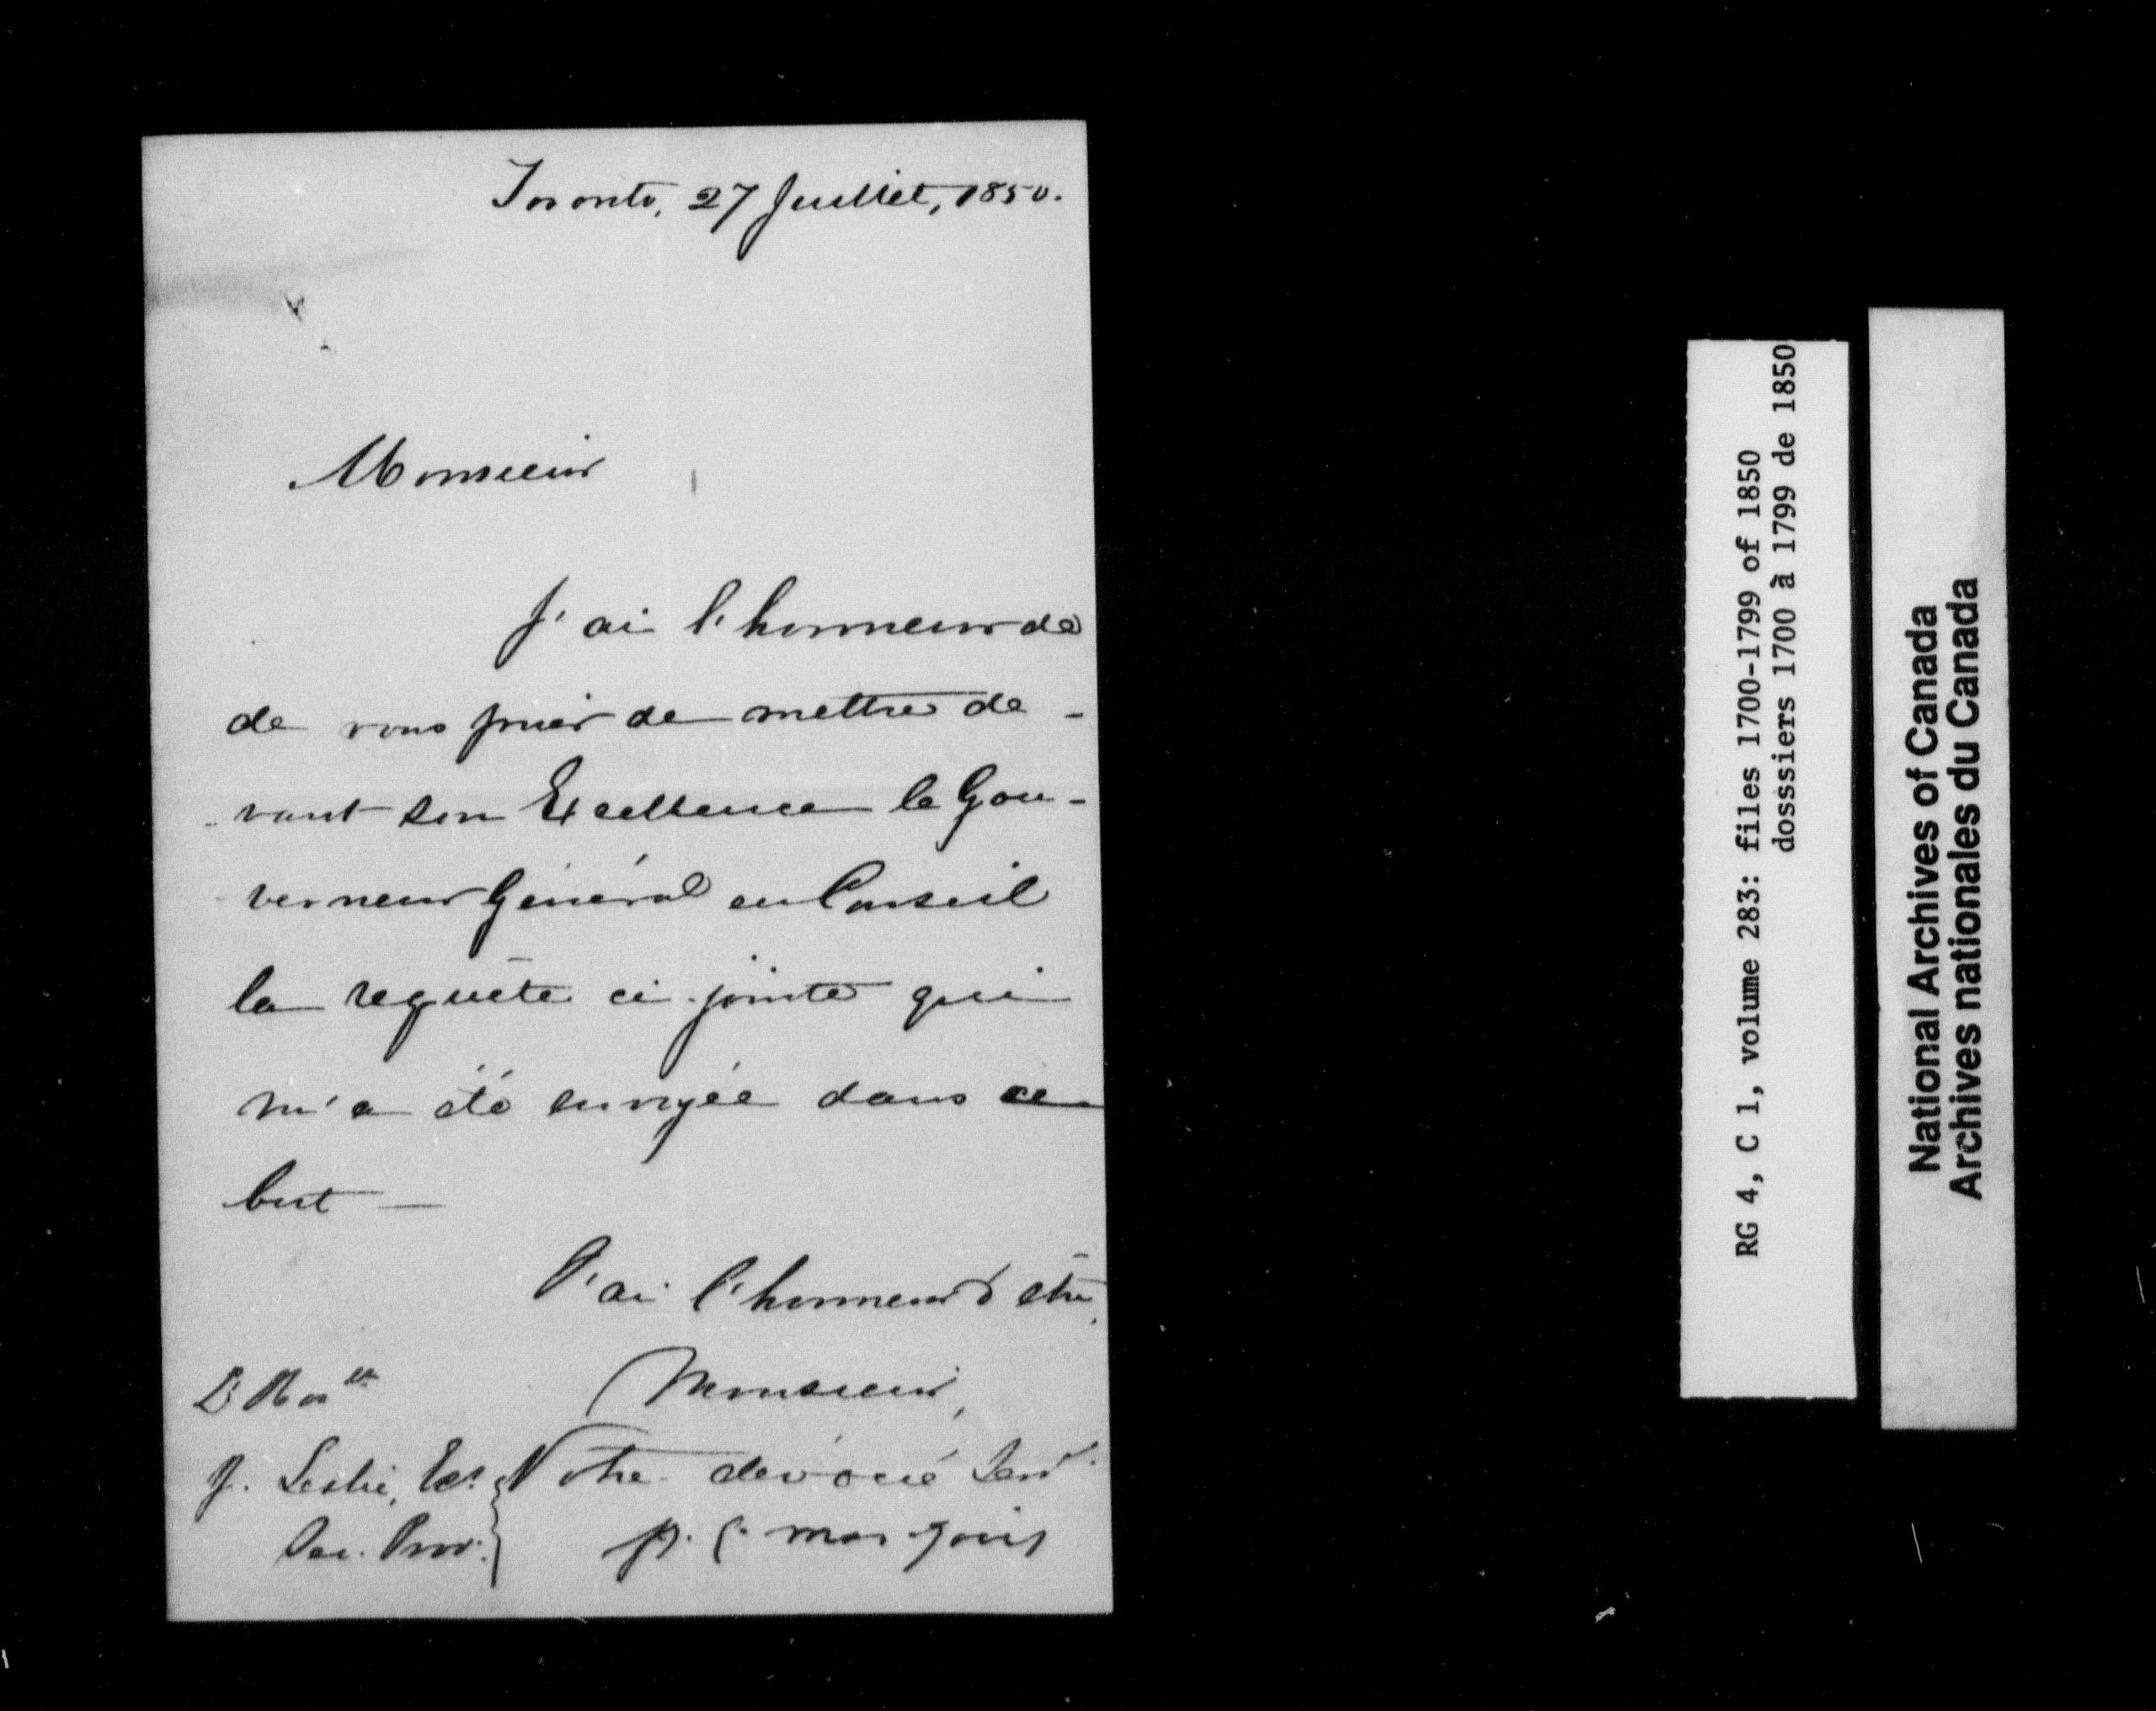 Toronto, 27 Juillet, 1850.
Monsieur
J'ai l'honneur de
de vous prier de mettre de-
vant son Excellence le Gou-
verneur Général en Conseil
la requête ci-jointe qui
m'a été envoyée dans ce
but —
J'ai l'honneur d'être,
Monsieur,
Votre dévoué Servr.
P. C. Marquis
L'Hon
J. Leslie, Ecr.
Sec. Prov.
RG 4, C 1, volume 283: files 1700-1799 of 1850
dosssiers 1700 à 1799 de 1850
National Archives of Canada
Archives nationales du Canada